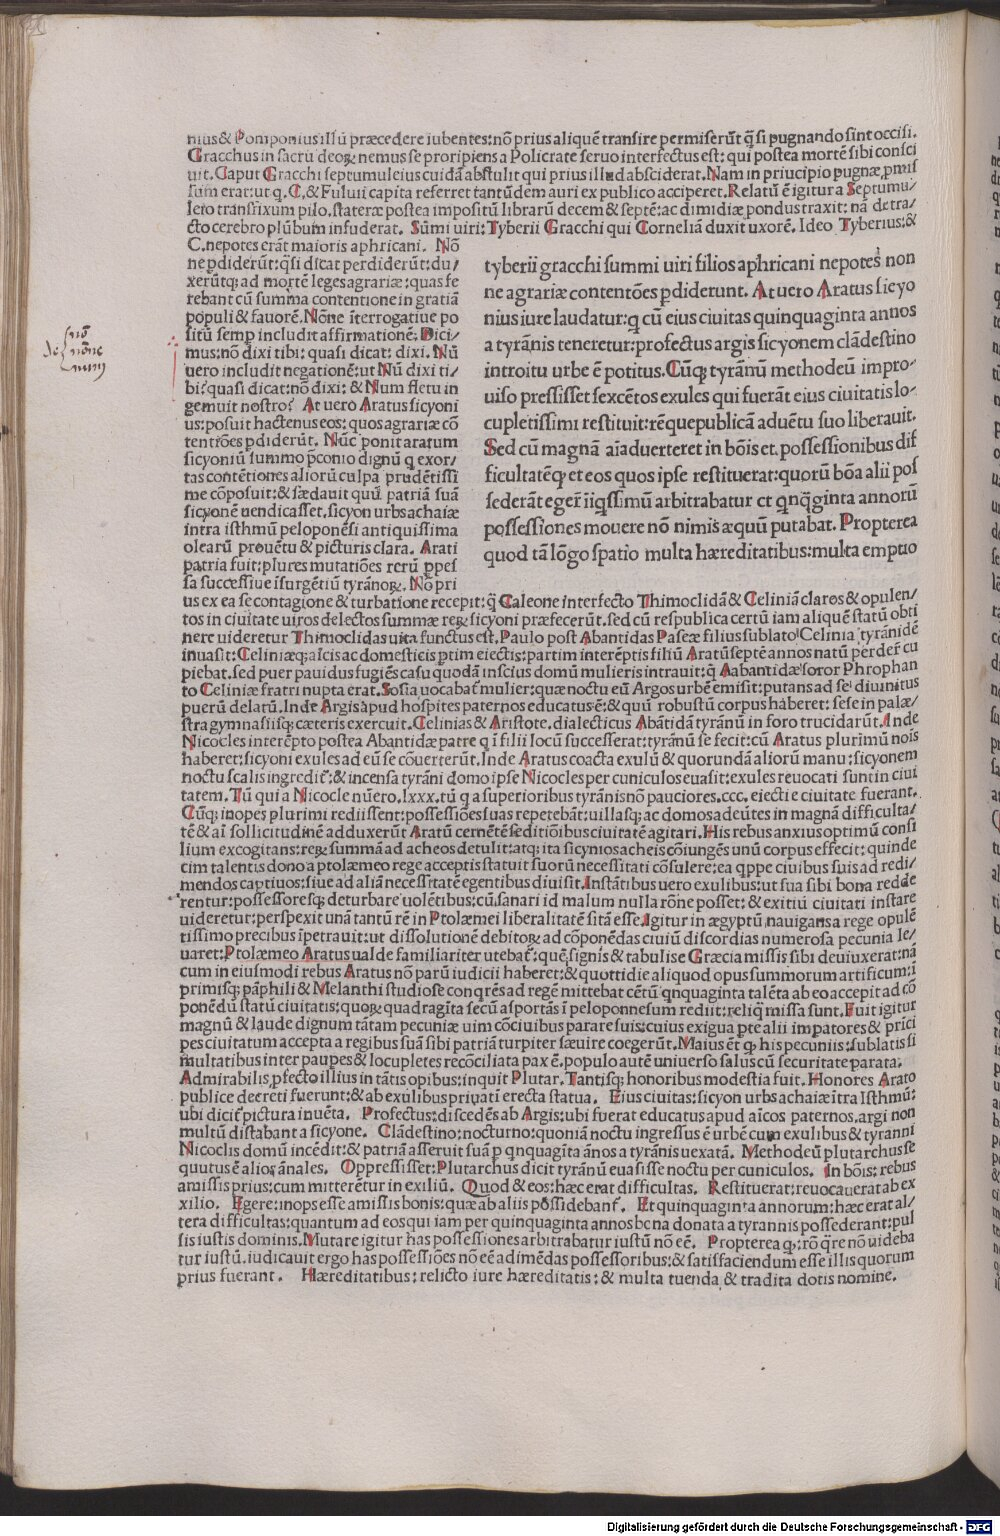 nius & Pomponius illū præcedere iubentes: nō prius aliquē transire permiserūt q̄ si pugnando sint occisi.
Gracchus in sacrū deoꝝ nemus se proripiens a Policrate seruo interfectus est: qui postea mortē sibi consci
uit. Caput Gracchi septumuleius cuidā abstulit qui prius illud absciderat. Nam in priucipio pugnæ, pmis
sum erat: ut q. C. & Fuluii capita referret tantūdem auri ex publico acciperet. Relatū ē igitur a Septumu/
leio transfixum pilo. stateræ postea impositū librarū decem & septē: ac dimidiæ pondus traxit: nā detra/
cto cerebro plūbum infuderat. Sūmi uiri: Tyberii Gracchi qui Corneliā duxit uxorē. Ideo Tyberius: &
C. nepotes erāt maioris aphricani. Nō
ne ꝑdiderūt: q̄si dicat perdiderūt: du/
xerūtq; ad mortē leges agrariæ: quas fe
rebant cū summa contentione in gratiā
populi & fauorē. Nōne īterrogatiue po
sitū semꝑ includit affirmationē: Dici/
mus: nō dixi tibi: quasi dicat: dixi. Nū
uero includit negationē: ut Nū dixi ti/
bi? quasi dicat: nō dixi: & Num fletu in
gemuit nostro? At uero Aratus sicyoni
us: posuit hactenus eos: quos agrariæ cō
tentiōes ꝑdiderūt. Nūc ponit aratum
sicyoniū summo ꝑconio dignū q exor/
tas contētiones aliorū culpa prudētissi
me cōposuit: & sædauit quū patriā suā
sicyonē uendicasset. sicyon urbs achaiæ
intra isthmū peloponēsi antiquissima
olearū prouētu & picturis clara. Arati
patria fuit: plures mutatiōes rerū ꝑpes
sa successiue īsurgētiū tyrānoꝝ. Nō pri
tyberii gracchi summi uiri filios aphricani nepotes non
ne agrariæ contentōes ꝑdiderunt. At uero Aratus sicyo
nius iure laudatur: q cū eius ciuitas quinquaginta annos
a tyrānis teneretur: profectus argis sicyonem clādestino
introitu urbe ē potitus. Cūq; tyrānū methodeū impro/
uiso pressisset sexcētos exules qui fuerāt eius ciuitatis lo/
cupletissimi restituit: rēque publicā aduētu suo liberauit.
Sed cū magnā aīaduerteret in bōis et possessionibus dif
ficultatēq et eos quos ipse restituerat: quorū bōa alii pos
sederāt egere īiqssimū arbitrabatur et qnqginta annorū
possessiones mouere nō nimis æquū putabat. Propterea
quod tā lōgo spatio multa hæreditatibus: multa emptio
us ex ea se contagione & turbatione recepit: q̄ Caleone interfecto Thimoclidā & Celiniā claros & opulen/
tos in ciuitate uiros delectos summæ reꝝ sicyoni præfecerūt. sed cū respublica certū iam aliquē statū obti
nere uideretur Thimoclidas uita functus est. Paulo post Abantidas Paseæ filius sublato Celinia tyrānidē
inuasit: Celiniæq; aīcis ac domesticis ꝑtim eiectis: partim interēptis filiū Aratū septē annos natū perdere cu
piebat. sed puer pauidus fugiēs casu quodā inscius domū mulieris intrauit: q̄ Aabantidæ soror Phrophan
to Celiniæ fratri nupta erat. Sosia uocabat mulier: quæ noctu eū Argos urbē emisit: putans ad se diuinitus
puerū delatū. Inde Argis apud hospites paternos educatus ē: & quū robustū corpus haberet: sese in palæ/
stra gymnasiisq; cæteris exercuit. Celinias & Aristote. dialecticus Abātidā tyrānū in foro trucidarūt. Inde
Nicocles interēpto postea Abantidæ patre q ī filii locū successerat: tyrānū se fecit: cū Aratus plurimū nois
haberet: sicyoni exules ad eū se cōuerterūt. Inde Aratus coacta exulū & quorundā aliorū manu: sicyonem
noctu scalis ingredit: & incensa tyrāni domo ipse Nicocles per cuniculos euasit: exules reuocati sunt in ciui
tatem. Tū qui a Nicocle nūero. lxxx. tū q a superioribus tyrānis nō pauciores. ccc. eiecti e ciuitate fuerant.
Cūq; inopes plurimi rediissent: possessiōes suas repetebāt: uillasq; ac domos adeūtes in magnā difficulta/
tē & aī sollicitudinē adduxerūt Aratū cernētē seditiōibus ciuitatē agitari. His rebus anxius optimū consi
lium excogitans: reꝝ summā ad acheos detulit: atq; ita sicynios acheis cōiungēs unū corpus effecit: quinde
cim talentis dono a ptolæmeo rege acceptis statuit suorū necessitati cōsulere: ea qppe ciuibus suis ad redi/
mendos captiuos: siue ad aliā necessitatē egentibus diuisit. Instātibus uero exulibus: ut sua sibi bona redde
rentur: possessoresq; deturbare uolētibus: cū, sanari id malum nulla rōne posset: & exitiū ciuitati instare
uideretur: perspexit unā tantū rē in Ptolæmei liberalitatē sitā esse. Igitur in ægyptū nauigans a rege opulē
tissimo precibus īpetrauit: ut dissolutionē debitoꝝ ad cōponēdas ciuiū discordias numerosa pecunia le/
uaret: Ptolæmeo Aratus ualde familiariter utebat: quē signis & tabulis e Græcia missis sibi deuiuxerat: nā
cum in eiusmodi rebus Aratus nō parū iudicii haberet: & quottidie aliquod opus summorum artificum: ī
primisq; pāphili & Melanthi studiose conqrēs ad regē mittebat cētū qnquaginta talēta ab eo accepit ad cō
ponēdū statū ciuitatis: quoꝝ quadragīta secū asportās ī peloponnesum rediit: reliq missa sunt. Fuit igitur
magnū & laude dignum tātam pecuniæ uim cōciuibus parare suis: cuius exigua ꝑte alii impatores & prici
pes ciuitatum accepta a regibus suā sibi patriā turpiter sæuire coegerūt. Maius ēt q his pecuniis: sublatis si
multatibus inter paupes & locupletes recōciliata pax ē. populo autē uniuerso salus cū securitate parata.
Admirabilis ꝑfecto illius in tātis opibus: inquit Plutar. Tantisq; honoribus modestia fuit. Honores Arato
publice decreti fuerunt: & ab exulibus priuatī erecta statua. Eius ciuitas: sicyon urbs achaiæ ītra Isthmū:
ubi dicit pictura inuēta. Profectus: discedēs ab Argis: ubi fuerat educatus apud aīcos paternos. argi non
multū distabant a sicyone. Clādestino: nocturno: quoniā noctu ingressus ē urbē cum exulibus & tyranni
Nicoclis domū incēdit: & patriā asseruit suā ꝑ qnquagīta ānos a tyrānis uexatā. Methodeū plutarchus se
quutus ē alios ānales. Oppressisset: Plutarchus dicit tyrānū euasisse noctu per cuniculos. In bōis: rebus
amissis prius: cum mitterētur in exiliū. Quod & eos: hæc erat difficultas. Restituerat: reuocauerat ab ex
xilio. Egere: inops esse amissis bonis: quæ ab aliis possidebant. Et quinquaginta annorum: hæc erat al/
tera difficultas: quantum ad eos qui iam per quinquaginta annos bona donata a tyrannis possederant: pul
sis iustis dominis. Mutare igitur has possessiones arbitrabatur iustū nō eē. Propterea q: rō q̄re nō uideba
tur iustū. iudicauit ergo has possessiōes nō eē adimēdas possessoribus: & satisfaciendum esse illis quorum
prius fuerant. Hæreditatibus: relicto iure hæreditatis: & multa tuenda & tradita dotis nomine.
de
nō
nōne
num
Digitalisierung gefördert durch die Deutsche Forschungsgemeinschaft - DFG